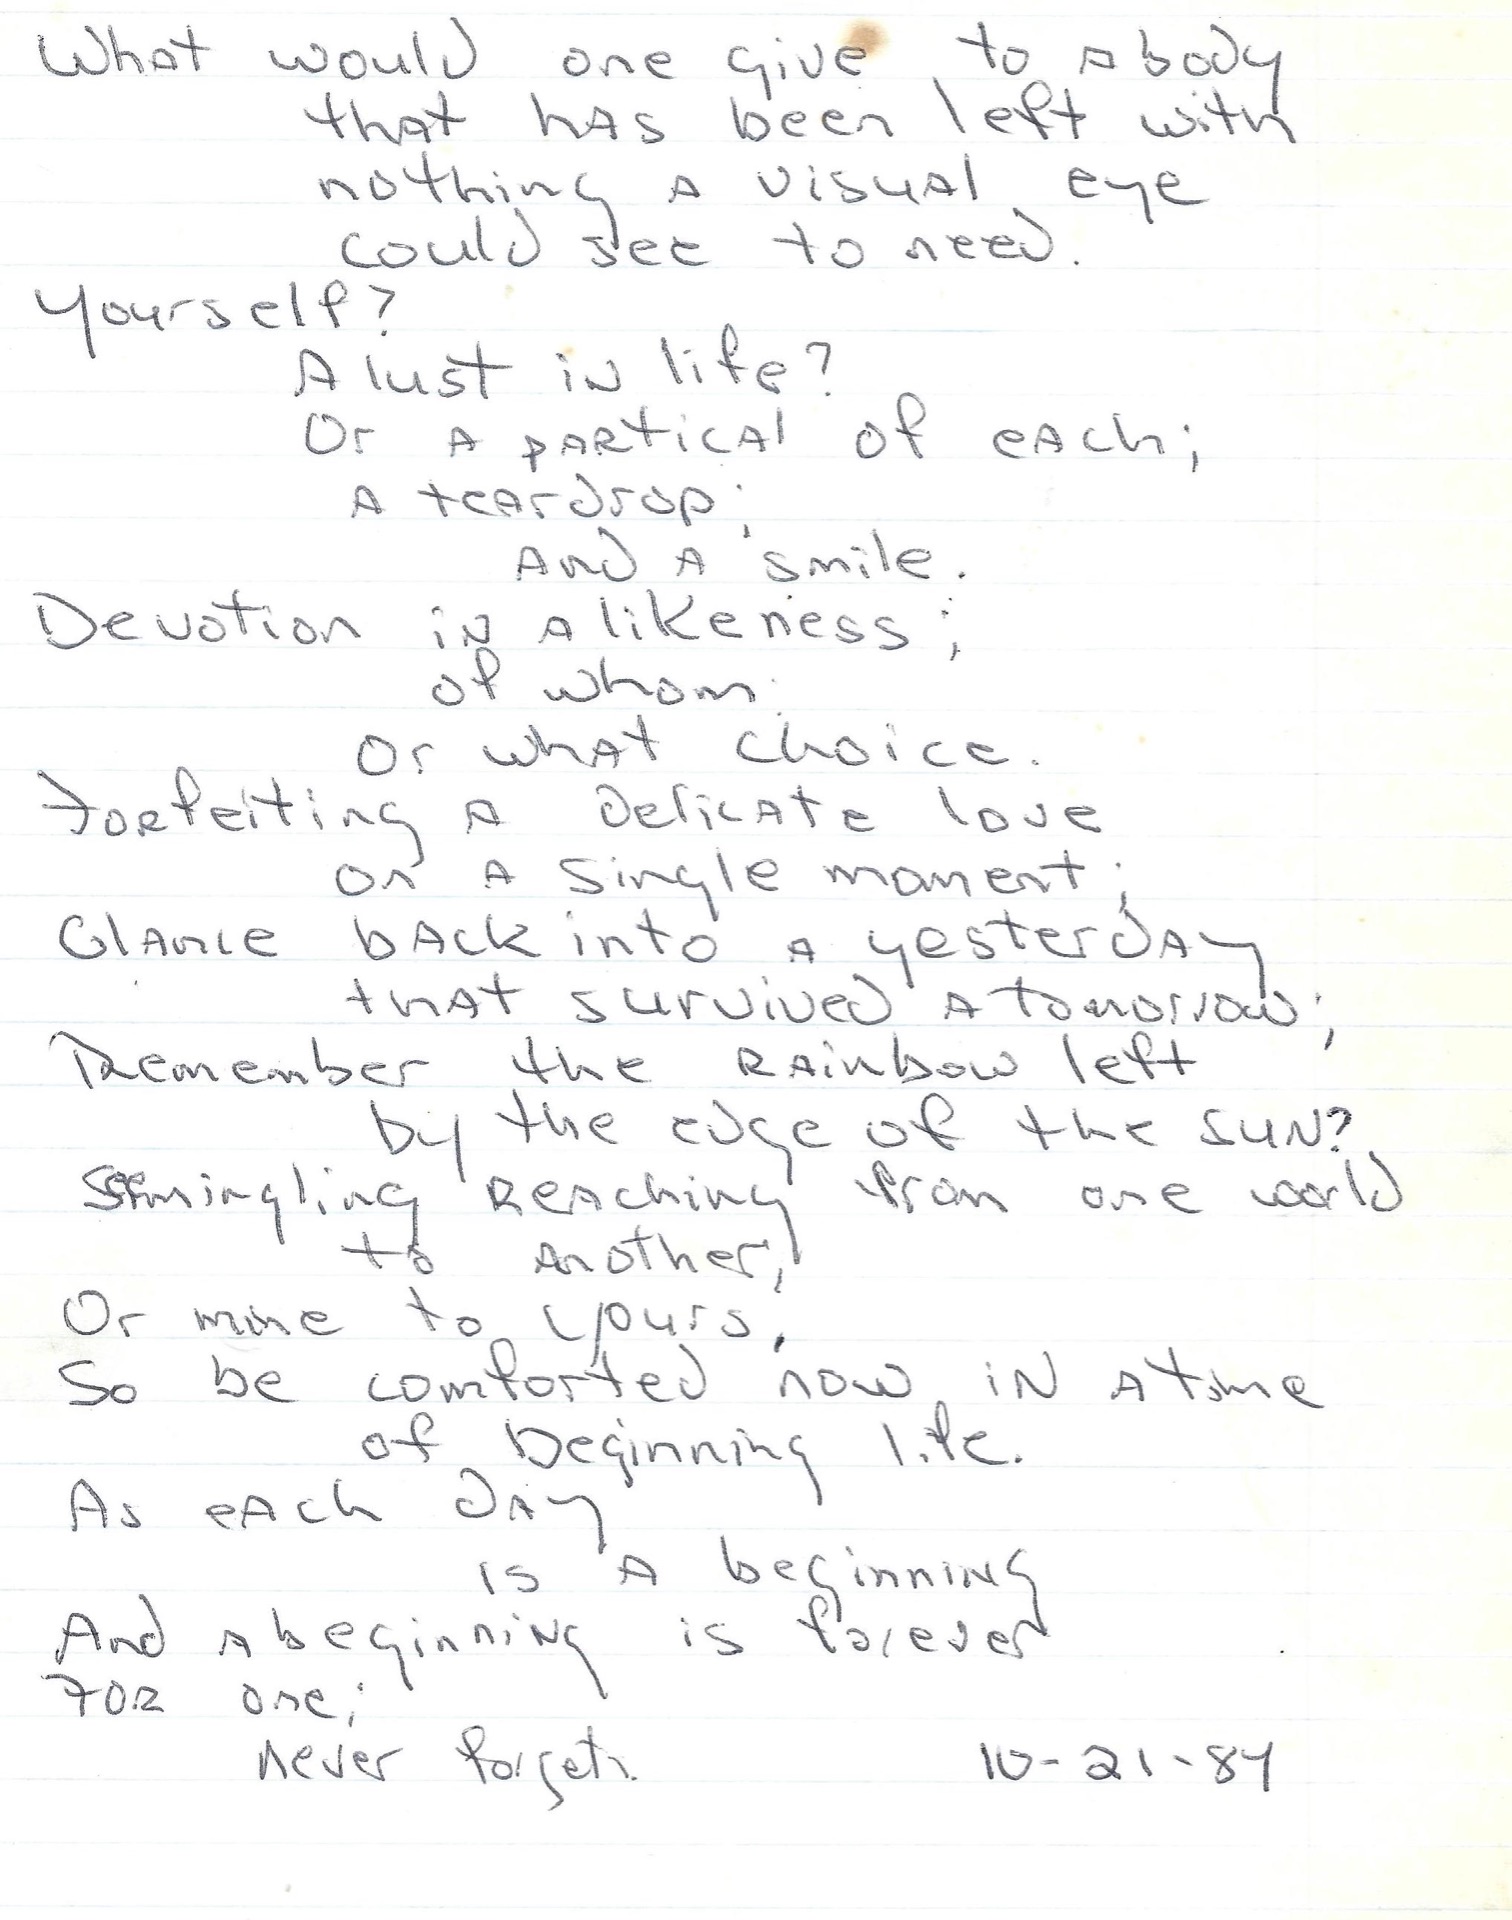 What would one give to a body
that has been left with
nothing a visual eye
could see to need.
Yourself?
A lust in life?
Or a partical of each;
a teardrop;
and a smile.
Devotion in a likeness;
of whom.
Or what choice.
Forfeiting a delicate love
on a single moment;
Glance back into a yesterday
that survived a tomorrow;
Remember the rainbow left
by the edge of the sun?
Seemingling reaching from one world
to another;
Or mine to yours.
So be comforted now in a time
of beginning life.
As each day
is a beginning
And a beginning is forever
For one;
never forget.
10-21-84